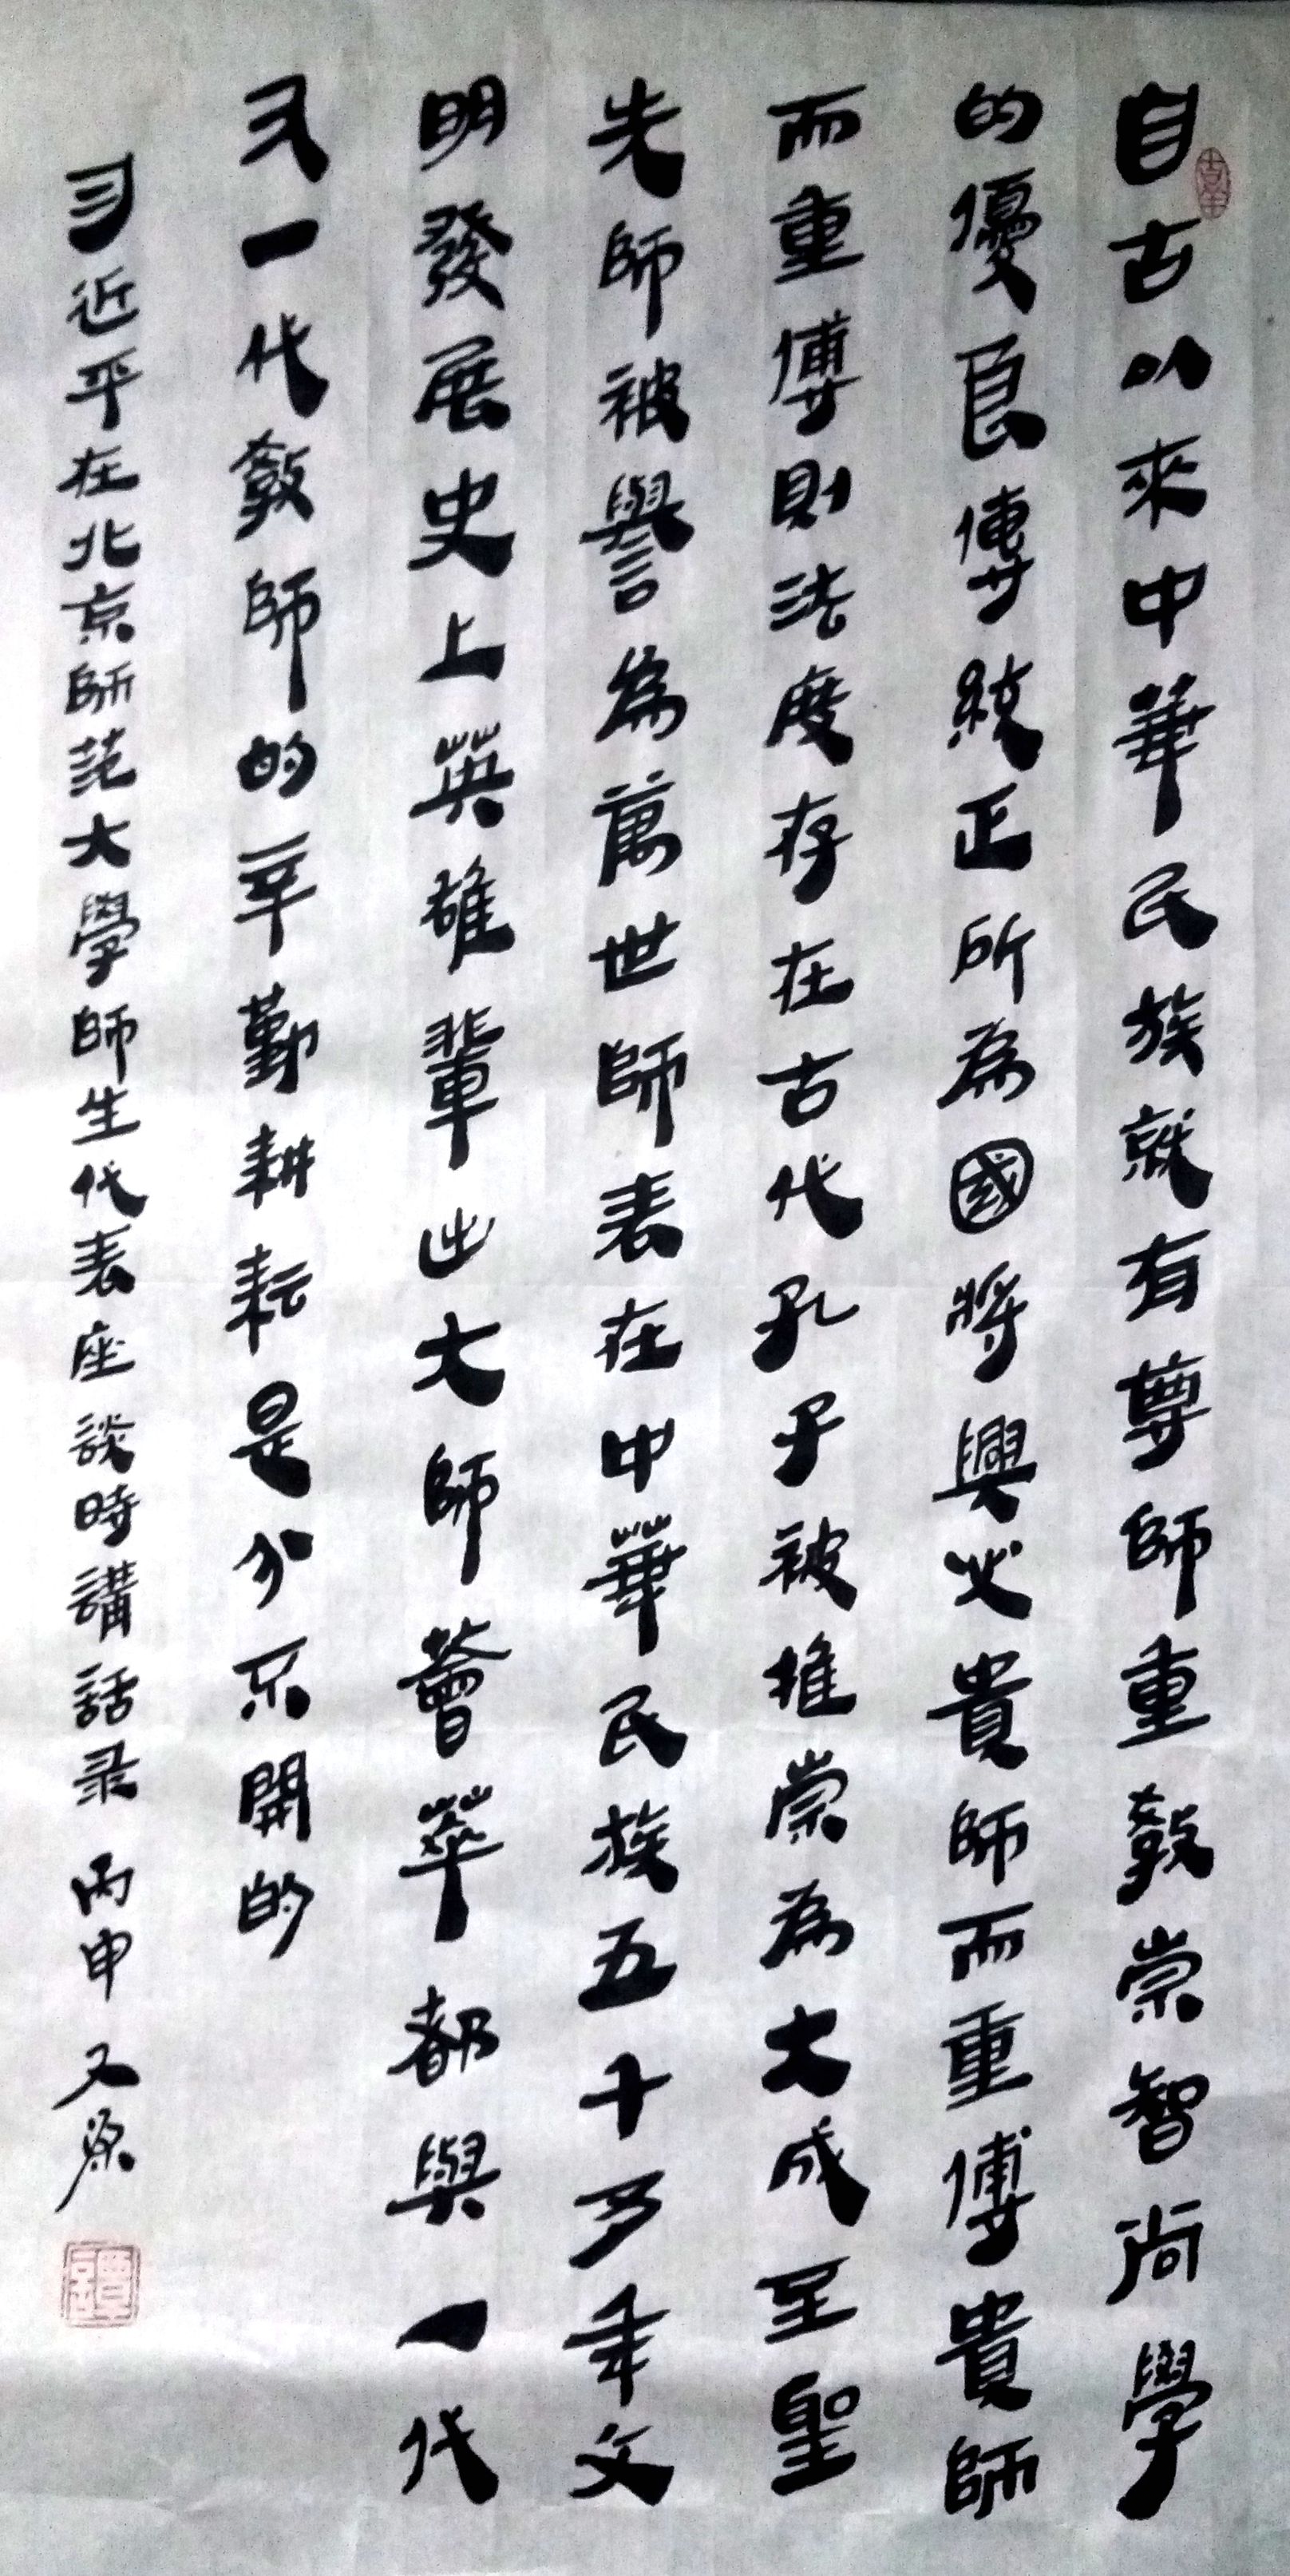 自古以來中華民族就有尊師重教崇智尚學
的優良傳統正所為國將興必貴師而重傅貴師
而重傅則法度存在古代孔子被推崇為大成至聖
先師被譽為萬世師表在中華民族五十多年文
明發展史上英雄輩出大師薈萃都與一代
又一代教師的辛勤耕耘是分不開的
习近平在北京師范大學師生代表座談時講話录 丙申 又
譚